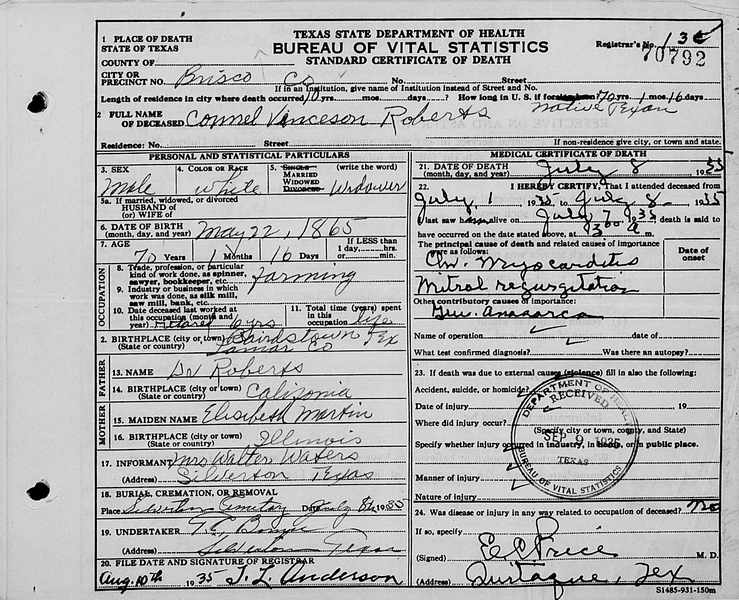 TEXAS STATE DEPARTMENT OF HEALTH
BUREAU OF VITAL STATISTICS
STANDARD CERTIFICATE OF DEATH
Registrar's No. 
70792
1 PLACE OF DEATH
STATE OF TEXAS
COUNTY OF
CITY OR
PRECINCT NO. Brisco Co No. Street
If in an Institution, give name of Institution instead of Street and No.
Length of residence in city where death occurred 10 yrs. mos. days. How long in U. S. if foreign born? 70 yrs. 1 mos. 16 days
Native Texan
2 FULL NAME
OF DECEASED Connel Vinceson Roberts
Residence: No. Street
If non-residence give city, or town and state.
PERSONAL AND STATISTICAL PARTICULARS
3. SEX
Male
4. COLOR OR RACE
White
5. SINGLE
MARRIED
WIDOWED
DIVORCED
(write the word)
Widower
5a. If married, widowed, or divorced
HUSBAND of
(or) WIFE of
6. DATE OF BIRTH
(month, day, and year) May 22, 1865
7. AGE
70 Years 1 Months 16 Days
If LESS than
1 day, hrs.
or min.
OCCUPATION
8. Trade, profession, or particular
kind of work done, as spinner,
sawyer, bookkeeper, etc. Farming
9. Industry or business in which
work was done, as silk mill,
saw mill, bank, etc.
10. Date deceased last worked at
this occupation (month and
year) 6 yrs
11. Total time (years) spent
in this
occupation life
2. BIRTHPLACE (city or town) Bairdstown Tex
(State or country) Lamar Co
FATHER
13. NAME Dr Roberts
14. BIRTHPLACE (city or town)
(State or country) California
MOTHER
15. MAIDEN NAME Elisibeth Martin
16. BIRTHPLACE (city or town)
(State or country) Illinois
17. INFORMANT Mrs Walter Waters
(Address) Silverton Texas
18. BURIAL, CREMATION, OR REMOVAL
Place Silverton Cemetery July 8th 1935
19. UNDERTAKER T. C.
(Address) Silverton Texas
20. FILE DATE AND SIGNATURE OF REGISTRAR
Aug. 10th 1935 T. L. Anderson
MEDICAL CERTIFICATE OF DEATH
21. DATE OF DEATH
(month, day, and year) July 8 1935
22. I HEREBY CERTIFY, That I attended deceased from
July 1 1935 to July 8 1935
I last saw alive on July 7 1935 death is said to
have occurred on the date stated above, at 3:00 a m.
The principal cause of death and related causes of importance
were as follows:
Date of
onset
Chr. Myocarditis
Mitral regurgitation
Other contributory causes of importance:
Gen. Anasarca
Name of operation date of
What test confirmed diagnosis? Was there an autopsy?
23. If death was due to external causes (violence) fill in also the following:
Accident, suicide, or homicide?
Date of injury 19
Where did injury occur?
(Specify city or town, county, and State)
Specify whether injury occurred in industry, in home, or in public place.
Manner of injury
Nature of injury
DEPARTMENT OF HEALTH
RECEIVED
SEP 9 1935
TEXAS
BUREAU OF VITAL STATISTICS
24. Was disease or injury in any way related to occupation of deceased? No
If so, specify
(Signed) E C Price M. D.
(Address) Tex
S1485-931-150m